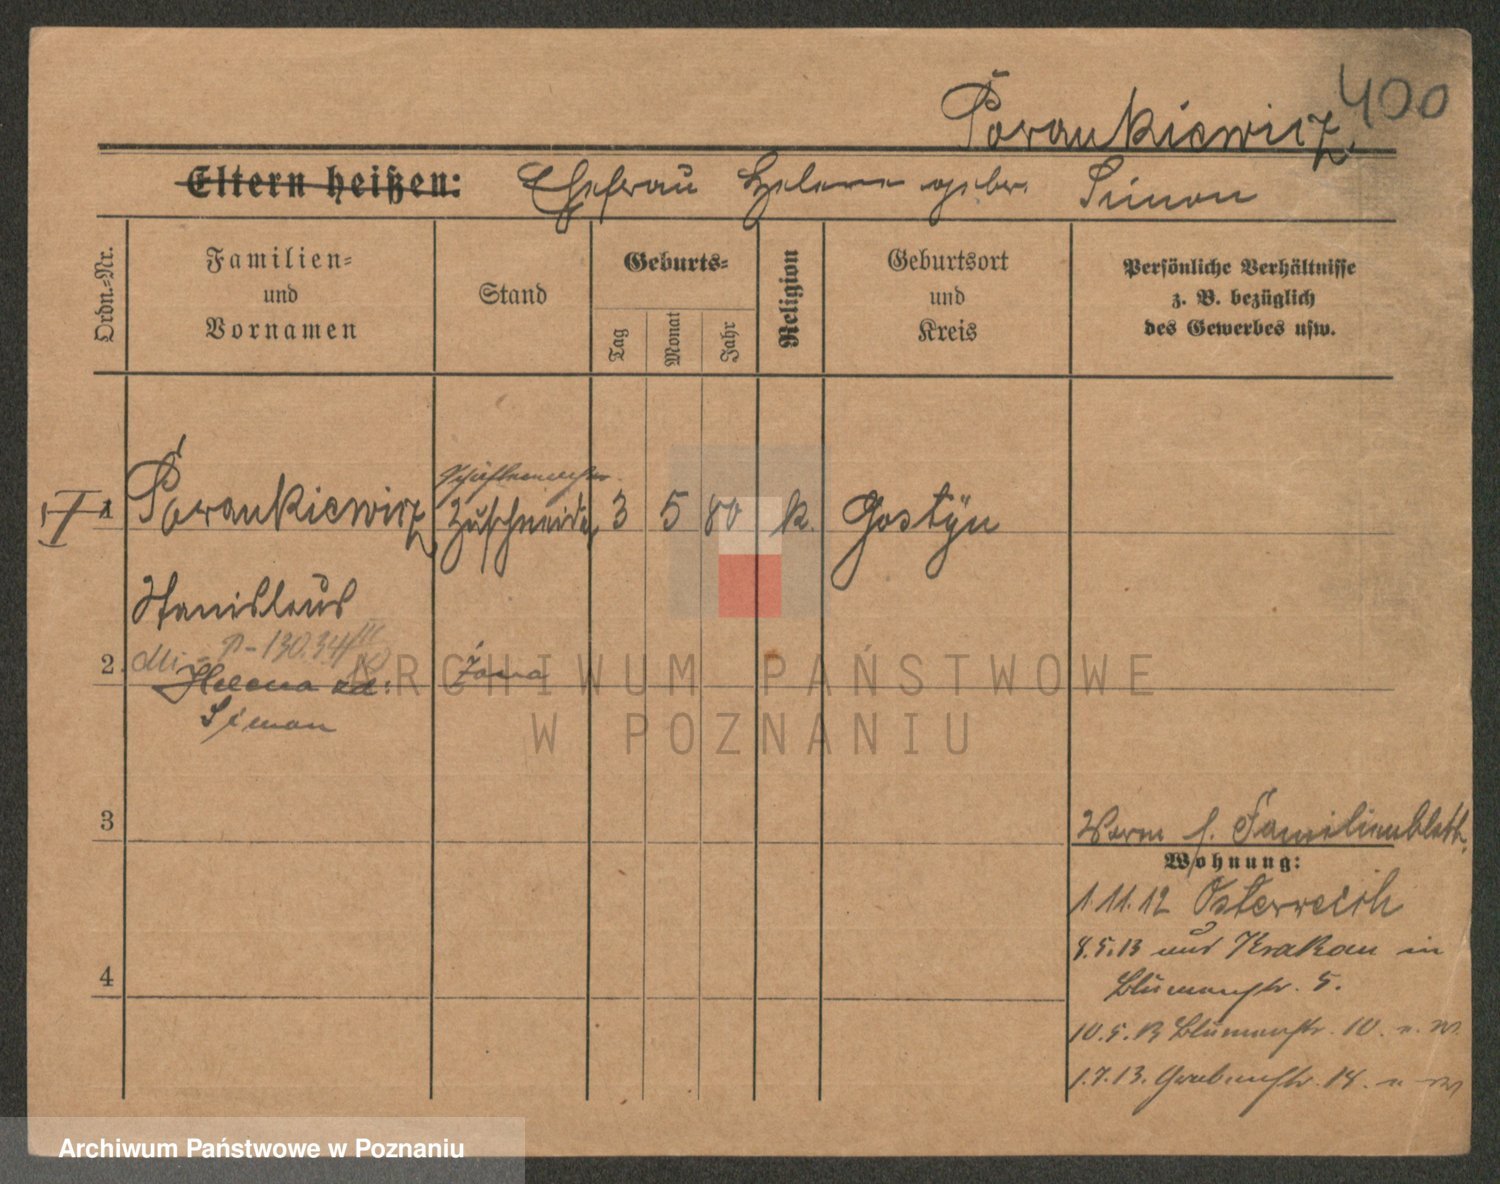 400
Porankiewicz.
Eltern heißen: Ehefrau Helene gebor. Simon
Ordn.-Nr.
Familien-
und
Vornamen
Stand
Geburts-
Tag
Monat
Jahr
Religion
Geburtsort
und
Kreis
Persönliche Verhältnisse
z. B. bezüglich
des Gewerbes usw.
I 1 Porankiewicz Zuschneider 3 5 80 k. Gostÿn
Stanislaus
2. Helena zd: żona
Simon
3
Worm s. Familienblatt.
Wohnung:
1.11.12 Österreich
8.5.13 aus Krakau in
Blumenstr. 5.
4
10.5.13 Blumenstr. 10.
1.7.13. Grabenstr. 14.
ARCHIWUM PAŃSTWOWE
W POZNANIU
Archiwum Państwowe w Poznaniu